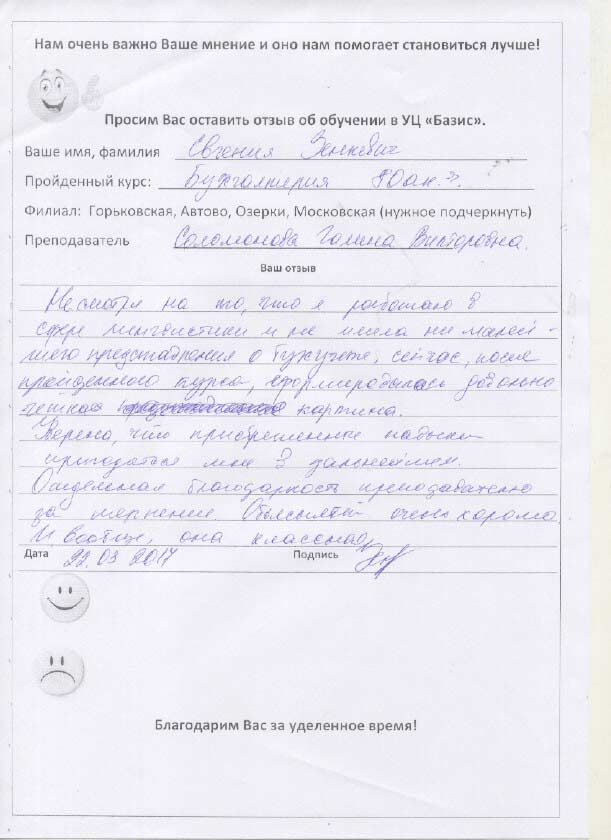 Нам очень важно Ваше мнение и оно нам помогает становиться лучше!
Просим Вас оставить отзыв об обучении в УЦ «Базис».
Ваше имя, фамилия Евгения Зенкевич
Пройденный курс: Бухгалтерия
Филиал: Горьковская, Автово, Озерки, Московская (нужное подчеркнуть)
Преподаватель Соломонова Галина Викторовна.
Ваш отзыв
Несмотря на то, что я работаю в
сфере лингвистики и не имела ни малей-
шего представления о бухучете, сейчас, после
пройденного курса, сформировалась довольно
четкая картина.
Уверена, что приобретенные навыки
пригодятся мне в дальнейшем.
Отдельная благодарность преподавателю
за терпение. Объясняет очень хорошо.
И вообще, она классная
Дата 22.03 2017 Подпись
Благодарим Вас за уделенное время!